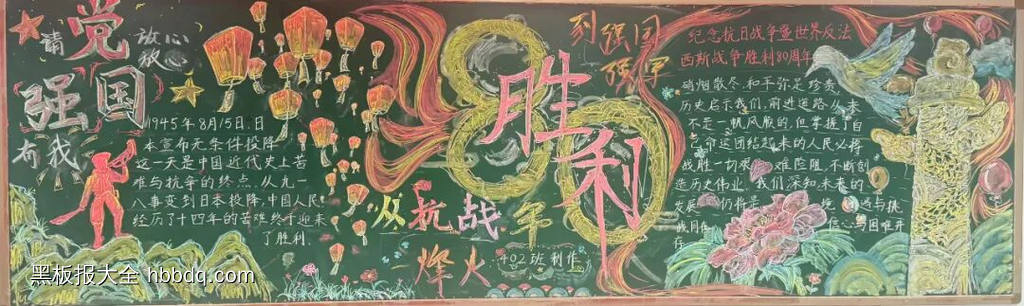 请党放心
强国有我
1945年8月15日,日
本宣布无条件投降
这一天是中国近代史上苦
难与抗争的终点,从九一
八事变到日本投降,中国人民
经历了十四年的苦难终于迎来
了胜利.
80
胜利
年
从抗战
烽火
到强国
强军
402班制作
纪念抗日战争暨世界反法
西斯战争胜利80周年
硝烟散尽,和平弥足珍贵
历史启示我们,前进道路从来
不是一帆风顺的,但掌握了自
己命运团结起来的人民必将
战胜一切艰难险阻,不断创
造历史伟业.我们深知未来的
发展仍将是
信心与困难并
存
黑板报大全 hbbdq.com